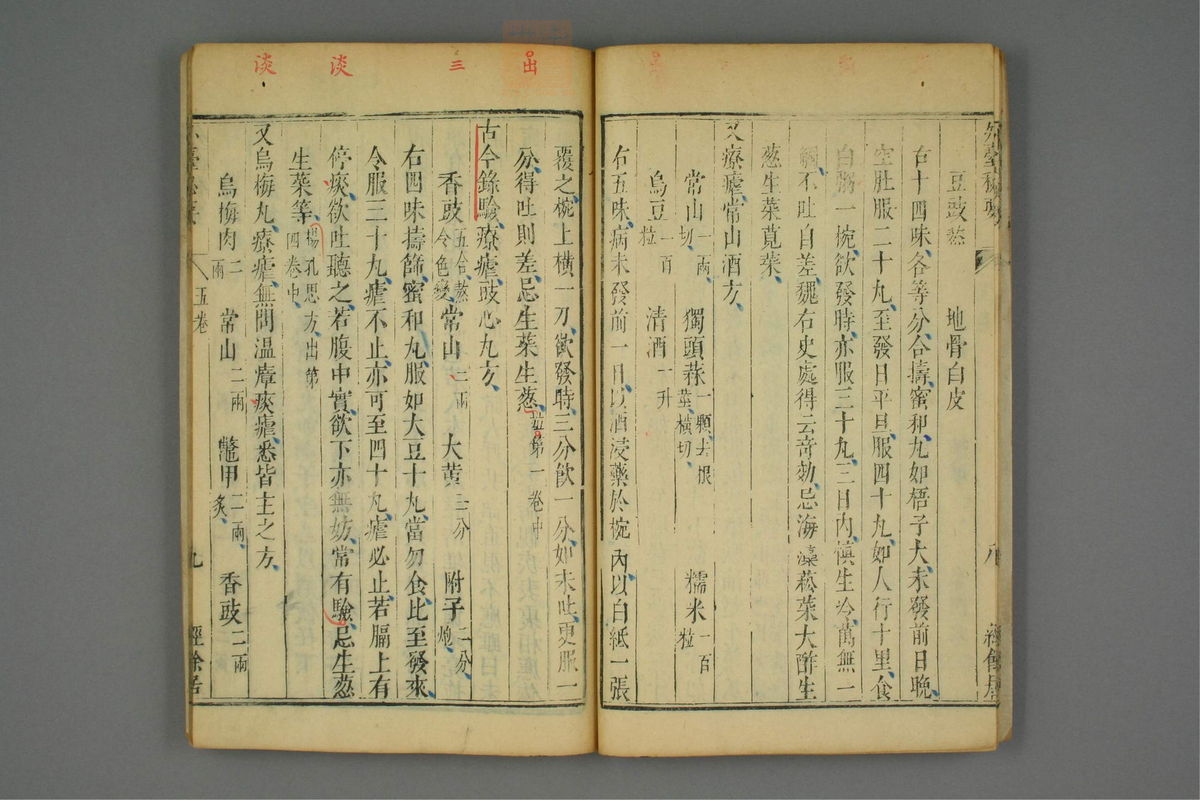 豆豉熬 地骨白皮
右十四味各等分合擣蜜和丸如梧子大未發前日晚
空肚服二十丸至發日平旦服四十丸如人行十里食
白粥一椀欲發時亦服三十丸三日內慎生冷萬無一
不吐自差魏右史處得云奇効忌海藻菘菜大酢生
葱生菜莧菜
又療瘧常山酒方
常山一兩切 獨頭蒜一顆去根莖橫切 糯米一百粒
烏豆一百粒 清酒一升
右五味病未發前一日以酒浸藥於椀內以白紙一張
外臺秘要
八
經餘居
覆之椀上橫一刀欲發時三分飲一分如未吐更服一
分得吐則差忌生菜生葱 第一卷中
古今錄驗療瘧豉心丸方
香豉五合熬令色變 常山二兩 大黃三分 附子二分炮
右四味擣篩蜜和丸服如大豆十丸當勿食比至發來
令服三十丸瘧不止亦可至四十丸瘧必止若膈上有
停痰欲吐聽之若腹中實欲下亦無妨常有驗忌生葱
生菜等楊孔思方出第四卷中
又烏梅丸療瘧無問溫瘴痰瘧悉皆主之方
烏梅肉二兩 常山二兩 鼈甲二兩炙 香豉二兩
五卷
九
經餘居
淡
淡
三
出